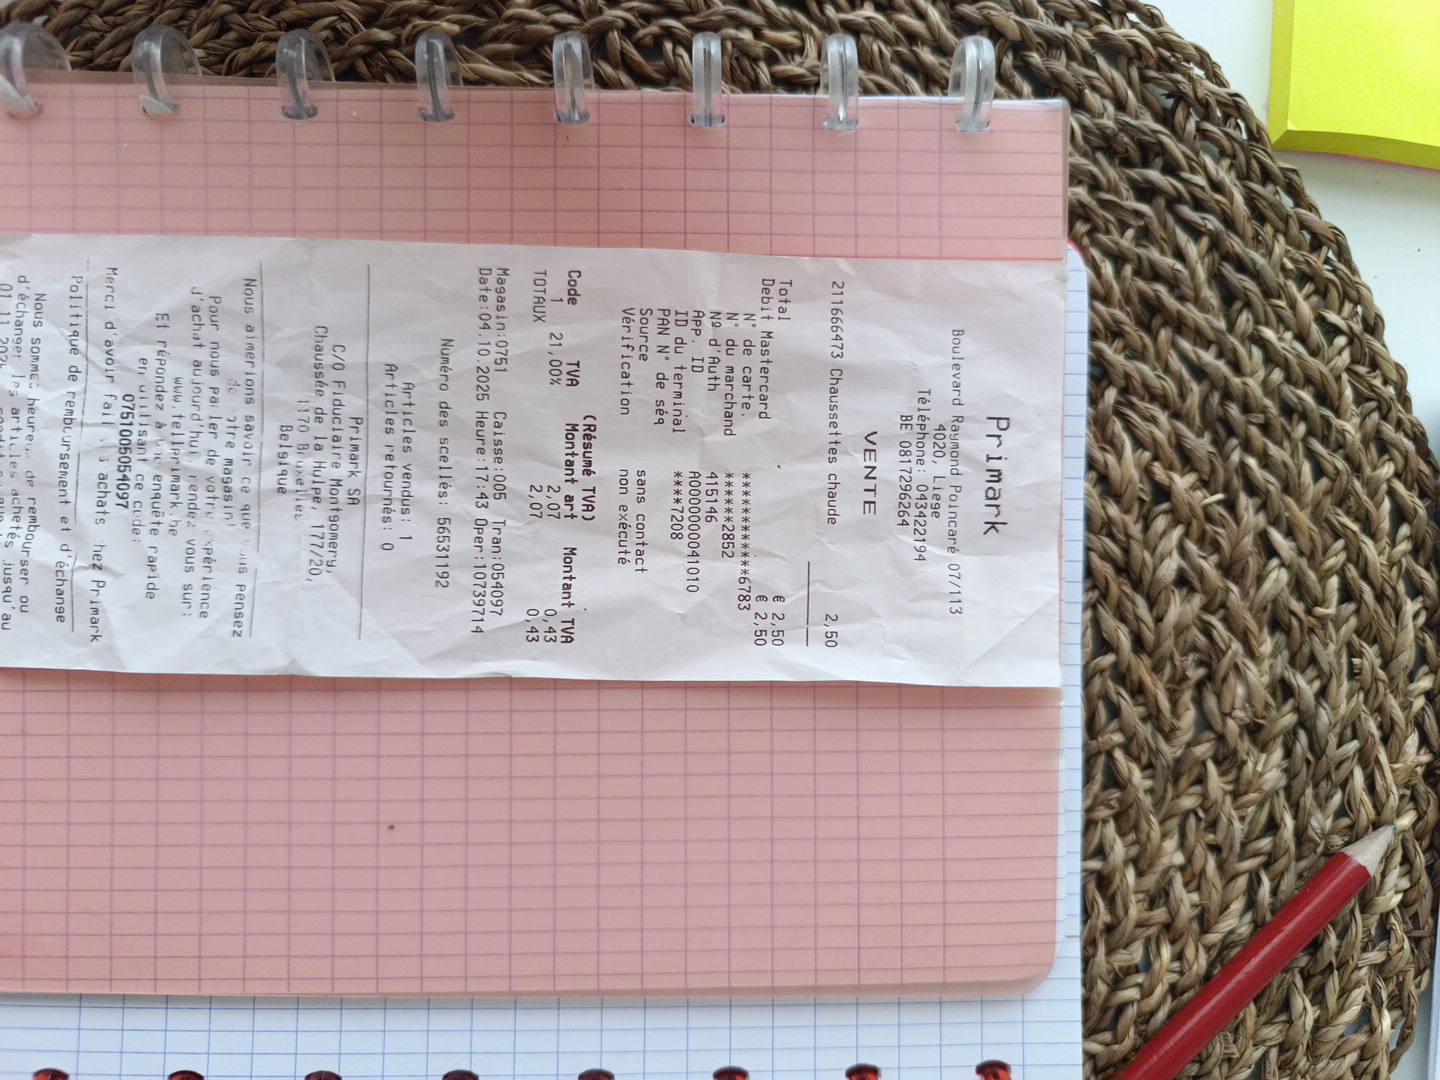 Primark
Boulevard Raymond Poincaré 07/113
4020, Liege
Téléphone: 043422194
BE 0817296264
VENTE
211666473 Chaussettes chaude 2,50
Total € 2,50
Debit Mastercard € 2,50
N° de carte. ************6783
N° du marchand ******2852
Nº d'Auth 415146
App. ID A0000000041010
ID du terminal ****7208
PAN N° de séq
Source sans contact
Vérification non exécuté
(Résumé TVA)
Code TVA Montant art Montant TVA
1 21,00% 2,07 0,43
TOTAUX 2,07 0,43
Magasin:0751 Caisse:005 Tran:054097
Date:04.10.2025 Heure:17:43 Oper:10739714
Numéro des scellés: 56531192
Articles vendus: 1
Articles retournés: 0
Primark SA
C/O Fiduciaire Montgomery,
Chaussée de la Hulpe, 177/20,
1170 Bruxelles
Belgique
Nous aimerions savoir ce que vous pensez
de votre magasin!
Pour nous parler de votre expérience
d'achat aujourd'hui, rendez vous sur:
www.tellprimark.be
Et répondez à une enquête rapide
en utilisant ce code:
0751005054097
Merci d'avoir fait vos achats chez Primark
Politique de remboursement et d'échange
Nous sommes heureux de rembourser ou
d'échanger les articles achetés jusqu'au